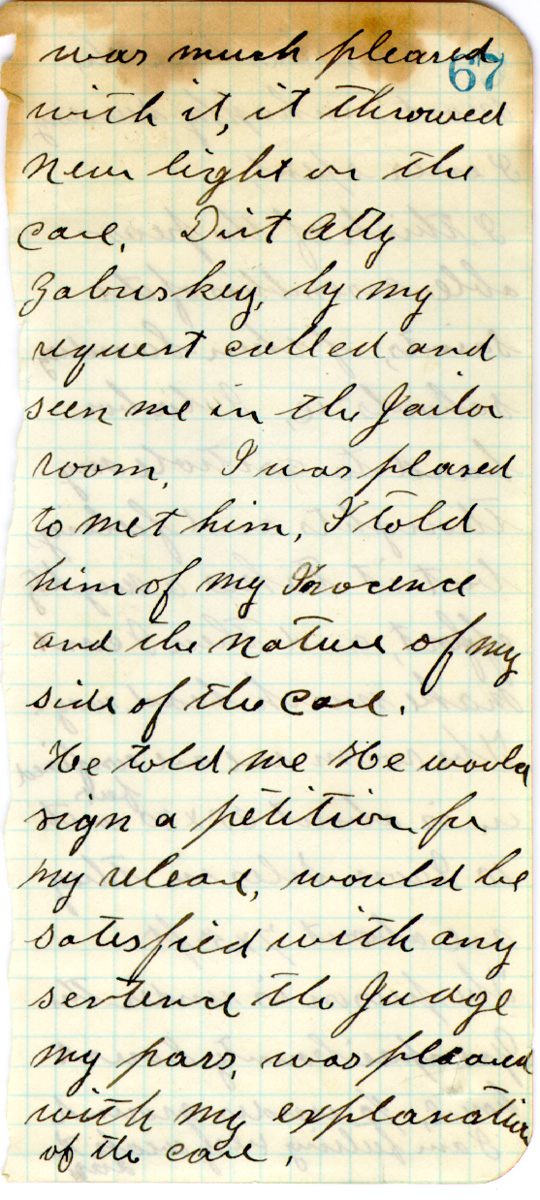 67
was much pleased
with it, it throwed
new light on the
case. Dist Atty
Zabriskey, by my
request called and
seen me in the Jailor
room, I was plased
to met him, I told
him of my Inocence
and the nature of my
side of the case.
He told me He would
sign a petition for
my release, would be
satesfied with any
sentence the Judge
my pass, was pleased
with my explanation
of the case.